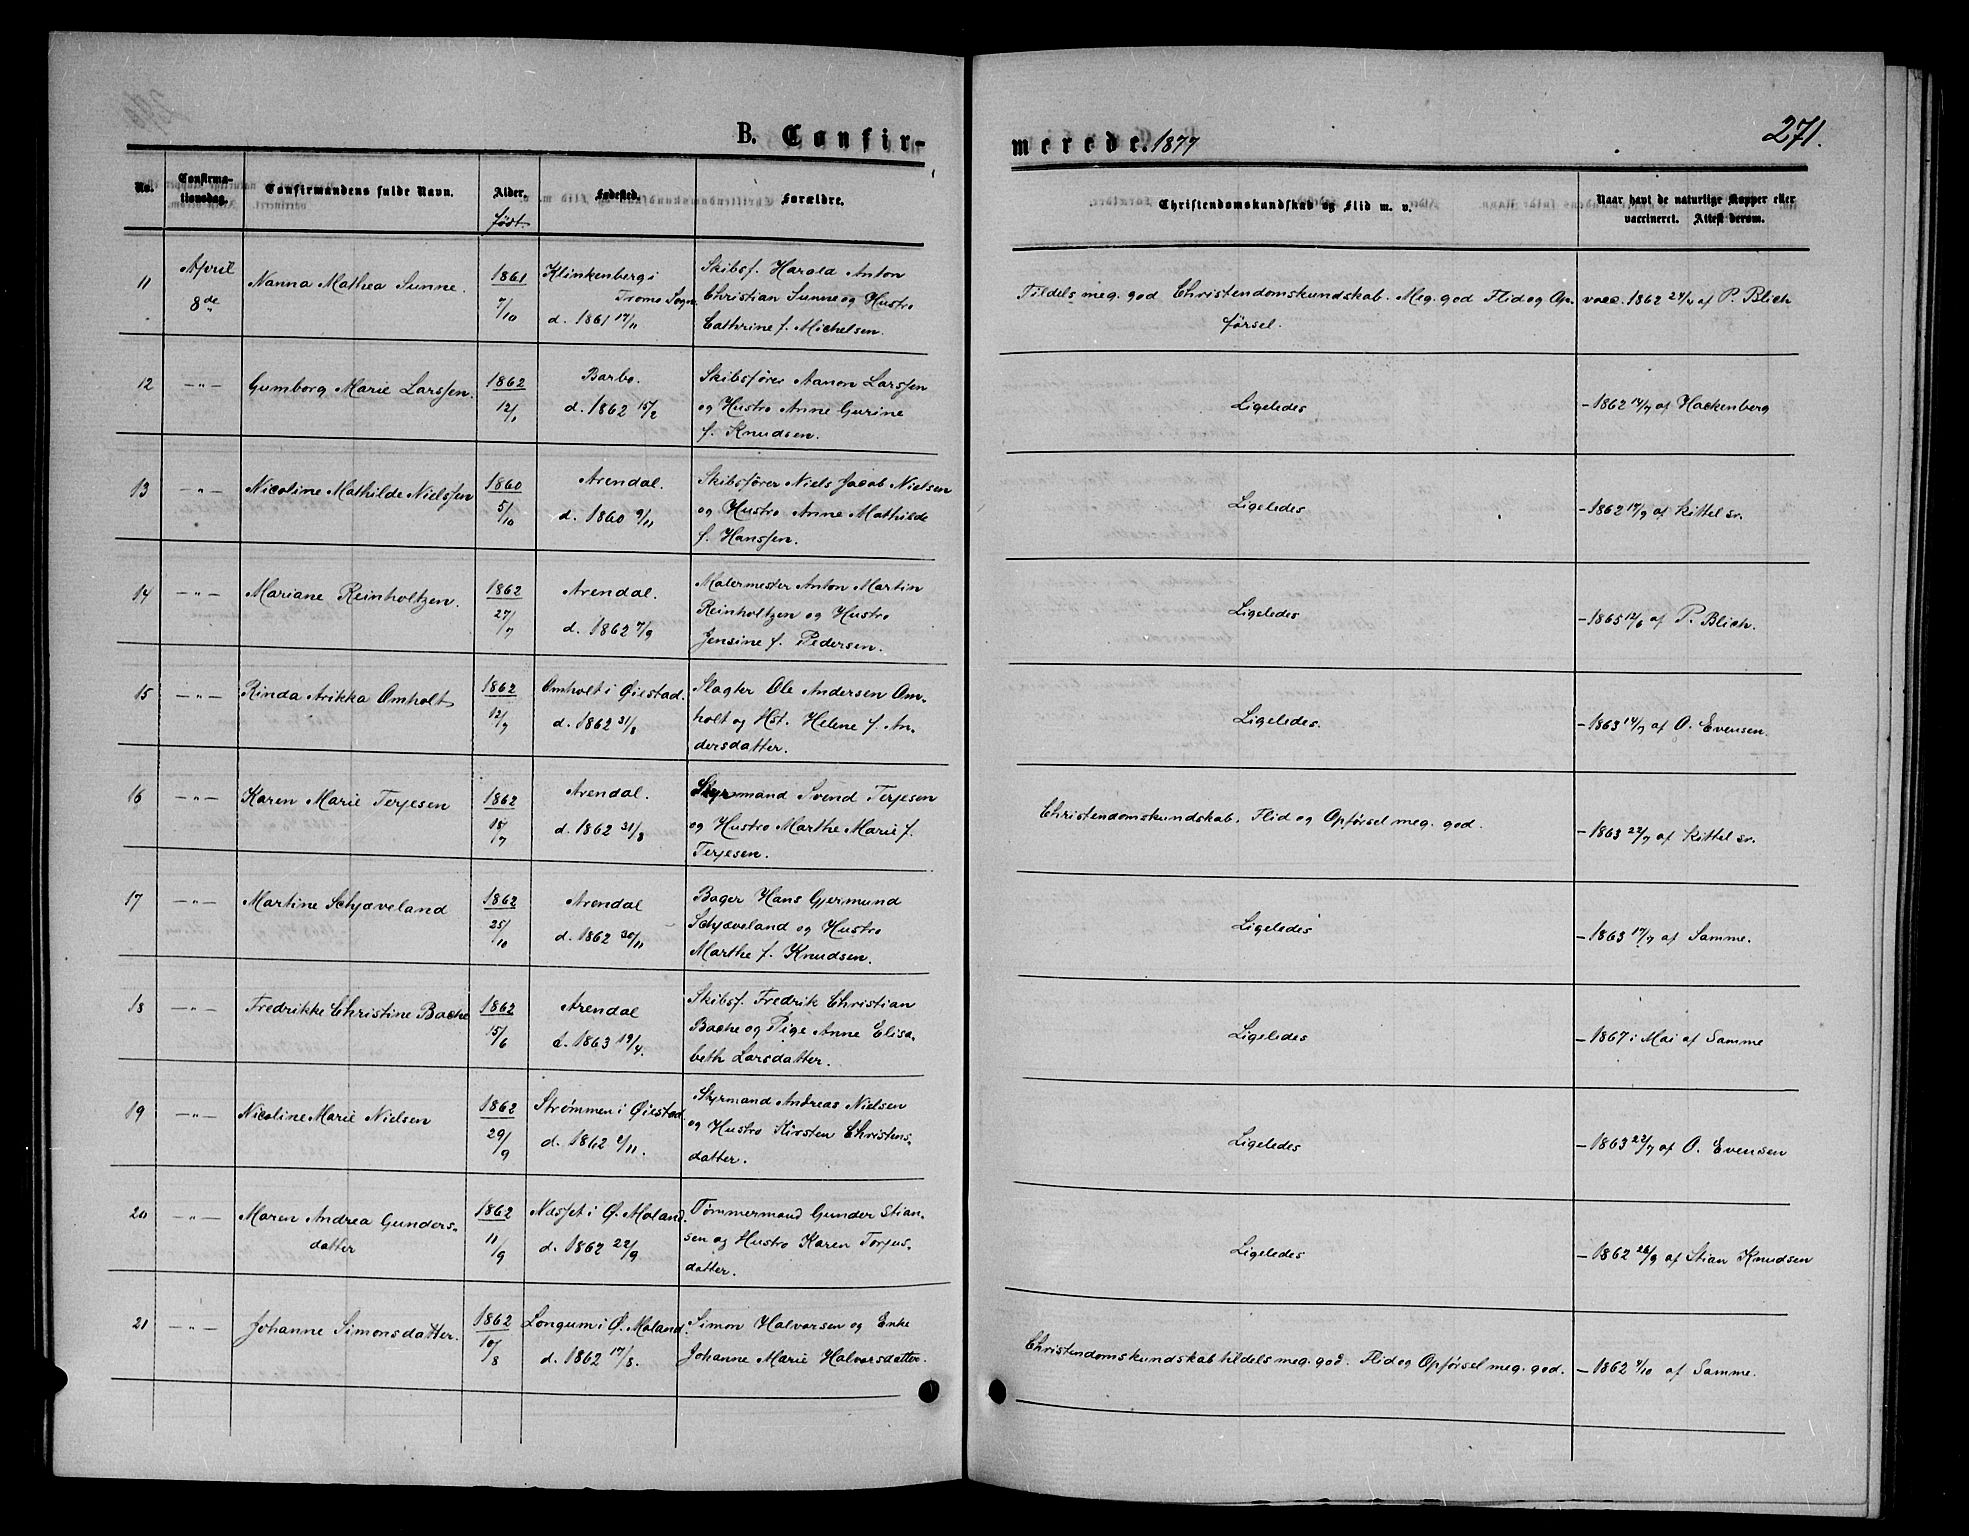 B. Confir-
merede. 1877
271.
No.
Confirma-
tionsdag.
Confirmandens fulde Navn.
Alder.
født
Fødested.
Forældre.
Christendomskundskab og Flid m. v.
Naar havt de naturlige Kopper eller
vaccineret. Attest derom.
11
April
8de
Nanna Mathea Sunne.
1861
7/10
Klinkenberg i
Tromø Sogn
d. 1861 17/11
Skibsf. Harald Anton
Christian Sunne og Hustro
Cathrine f. Michelsen.
Tildels meg. god Christendomskundskab. Meg. god Flid og Op-
førsel.
vacc. 1862 24/9 af P. Blich
12
— " —
Gumborg Marie Larssen.
1862
12/1
Barbo.
d. 1862 15/2
Skibsfører Aanon Larssen
og Hustro Anne Gurine
f. Knudsen.
Ligeledes
- 1862 14/7 af Hackenberg
13
— " —
Nicoline Mathilde Nielssen
1860
5/10
Arendal.
d. 1860 9/11
Skibsfører Niels Jacob Nielsen
og Hustro Anne Mathilde
f. Hanssen.
Ligeledes
- 1862 17/9 af Kittel sr.
14
— " —
Mariane Reinholtzen.
1862
27/7
Arendal.
d. 1862 7/9
Malermester Anton Martin
Reinholtzen og Hustro
Jensine f. Pedersen.
Ligeledes
- 1865 12/6 af P. Blich.
15
— " —
Rinda Arikka Omholt
1862
12/7
Omholt i Øiestad.
d. 1862 31/8
Slagter Ole Andersen Om-
holt og Hst. Helene f. An-
dersdatter.
Ligeledes.
- 1863 14/7 af O. Evensen.
16
— " —
Karen Marie Terjesen
1862
15/7
Arendal.
d. 1862 31/8
Styrmand Svend Terjesen
og Hustro Marthe Marie f.
Terjesen.
Christendomskundskab, Flid og Opførsel meg. god.
- 1863 22/7 af Kittel sr.
17
— " —
Martine Schjæveland
1862
25/10
Arendal
d. 1862 30/11
Bager Hans Gjermund
Schjæveland og Hustro
Marthe f. Knudsen.
Ligeledes
- 1863 17/7 af Samme.
18
— " —
Fredrikke Christine Bache
1862
15/6
Arendal
d. 1863 19/4.
Skibsf. Fredrik Christian
Bache og Pige Anne Elisa-
beth Larsdatter.
Ligeledes
- 1867 i Mai af Samme
19
— " —
Nicoline Marie Nielsen
1862
29/9
Strømmen i Øiestad
d. 1862 2/11.
Styrmand Andreas Nielsen
og Hustro Kirsten Christens-
datter.
Ligeledes
- 1863 22/7 af O. Evensen
20
— " —
Maren Andrea Gunders-
datter
1862
11/9
Næsset i Ø. Moland.
d. 1862 22/9
Tømmermand Gunder Stian-
sen og Hustro Karen Torjus-
datter.
Ligeledes
- 1862 26/9 af Stian Knudsen
21
— " —
Johanne Simonsdatter.
1862
10/8
Longum i Ø. Moland.
d. 1862 17/8.
Simon Halvorsen og Enke
Johanne Marie Halvorsdatter.
Christendomskundskab tildels meg. god. Flid og Opførsel meg. god.
- 1862 7/10 af Samme.